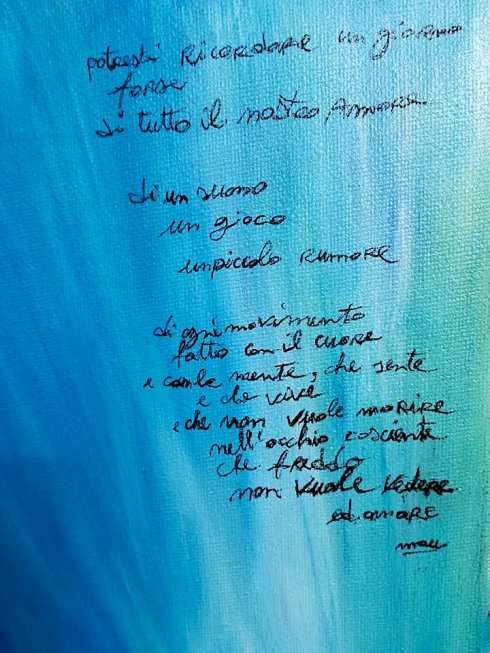 potresti Ricordare un giorno
forse
di tutto il nostro Amore
di un suono
un gioco
un piccolo rumore
di ogni movimento
fatto con il cuore
e con la mente, che sente
e che vive
e che non vuole morire
nell'occhio cosciente
che freddo
non vuole vedere
ed amare
mau